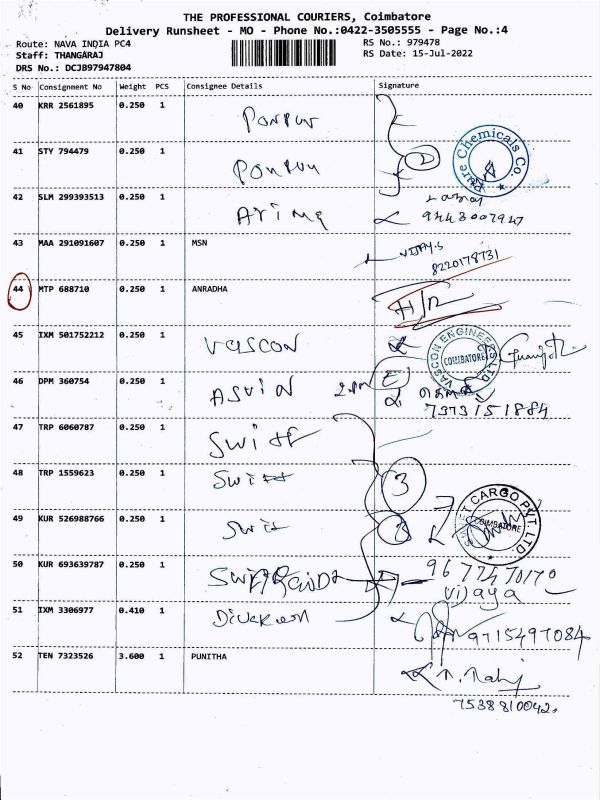 THE PROFESSIONAL COURIERS, Coimbatore
Delivery Runsheet - MO - Phone No.:0422-3505555 - Page No.:4
Route: NAVA INDIA PC4
RS No.: 979478
Staff: THANGARAJ
RS Date: 15-Jul-2022
DRS No.: DCJB97947804
S No Consignment No Weight PCS Consignee Details Signature
40 KRR 2561895 0.250 1
41 STY 794479 0.250 1
Pure Chemicals Co.
2
42 SLM 299393513 0.250 1
9443007947
43 MAA 291091607 0.250 1 MSN VIJAY.S
8220178731
44 MTP 688710 0.250 1 ANRADHA
45 IXM 501752212 0.250 1 VASCON
VASCON ENGINEERS LTD. COIMBATORE
46 DPM 360754 0.250 1 ASVIN
7373151884
47 TRP 6060787 0.250 1 Swift
48 TRP 1559623 0.250 1 Swift 3
49 KUR 526988766 0.250 1 Swift
CARGO PVT. LTD. COIMBATORE
50 KUR 693639787 0.250 1
9677470170
Vijaya
51 IXM 3306977 0.410 1 Divakaran 9715497084
52 TEN 7323526 3.600 1 PUNITHA
7538810042